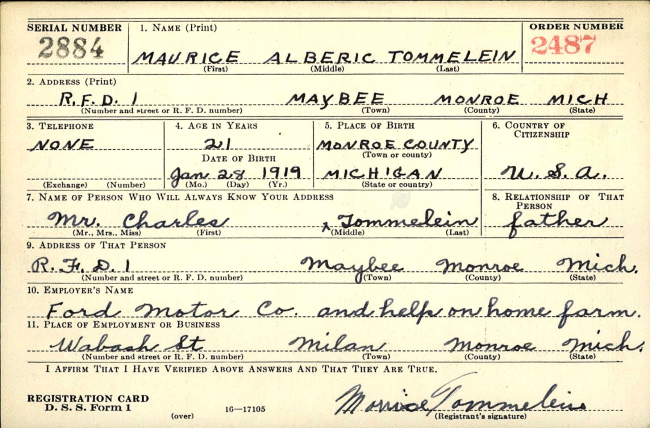 SERIAL NUMBER 1. NAME (Print) ORDER NUMBER
2884 MAURICE ALBERIC TOMMELEIN 2487
(First) (Middle) (Last)
2. ADDRESS (Print)
R.F.D. 1 MAYBEE MONROE MICH
(Number and street or R. F. D. number) (Town) (County) (State)
3. TELEPHONE 4. AGE IN YEARS 5. PLACE OF BIRTH 6. COUNTRY OF CITIZENSHIP
NONE 21 MONROE COUNTY
DATE OF BIRTH (Town or county)
Jan 28 1919 MICHIGAN U.S.A.
(Exchange) (Number) (Mo.) (Day) (Yr.) (State or country)
7. NAME OF PERSON WHO WILL ALWAYS KNOW YOUR ADDRESS 8. RELATIONSHIP OF THAT PERSON
Mr. Charles x Tommelein father
(Mr., Mrs., Miss) (First) (Middle) (Last)
9. ADDRESS OF THAT PERSON
R.F.D. 1 Maybee Monroe Mich.
(Number and street or R. F. D. number) (Town) (County) (State)
10. EMPLOYER'S NAME
Ford Motor Co. and helps on home farm.
11. PLACE OF EMPLOYMENT OR BUSINESS
Wabash St Milan Monroe Mich.
(Number and street or R. F. D. number) (Town) (County) (State)
I AFFIRM THAT I HAVE VERIFIED ABOVE ANSWERS AND THAT THEY ARE TRUE.
REGISTRATION CARD
D. S. S. Form 1 16-17105 Tommelein
(over) (Registrant's signature)